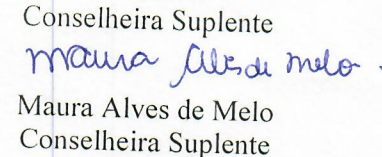 Conselheira Suplente
Maura Alves de Melo.
Maura Alves de Melo
Conselheira Suplente